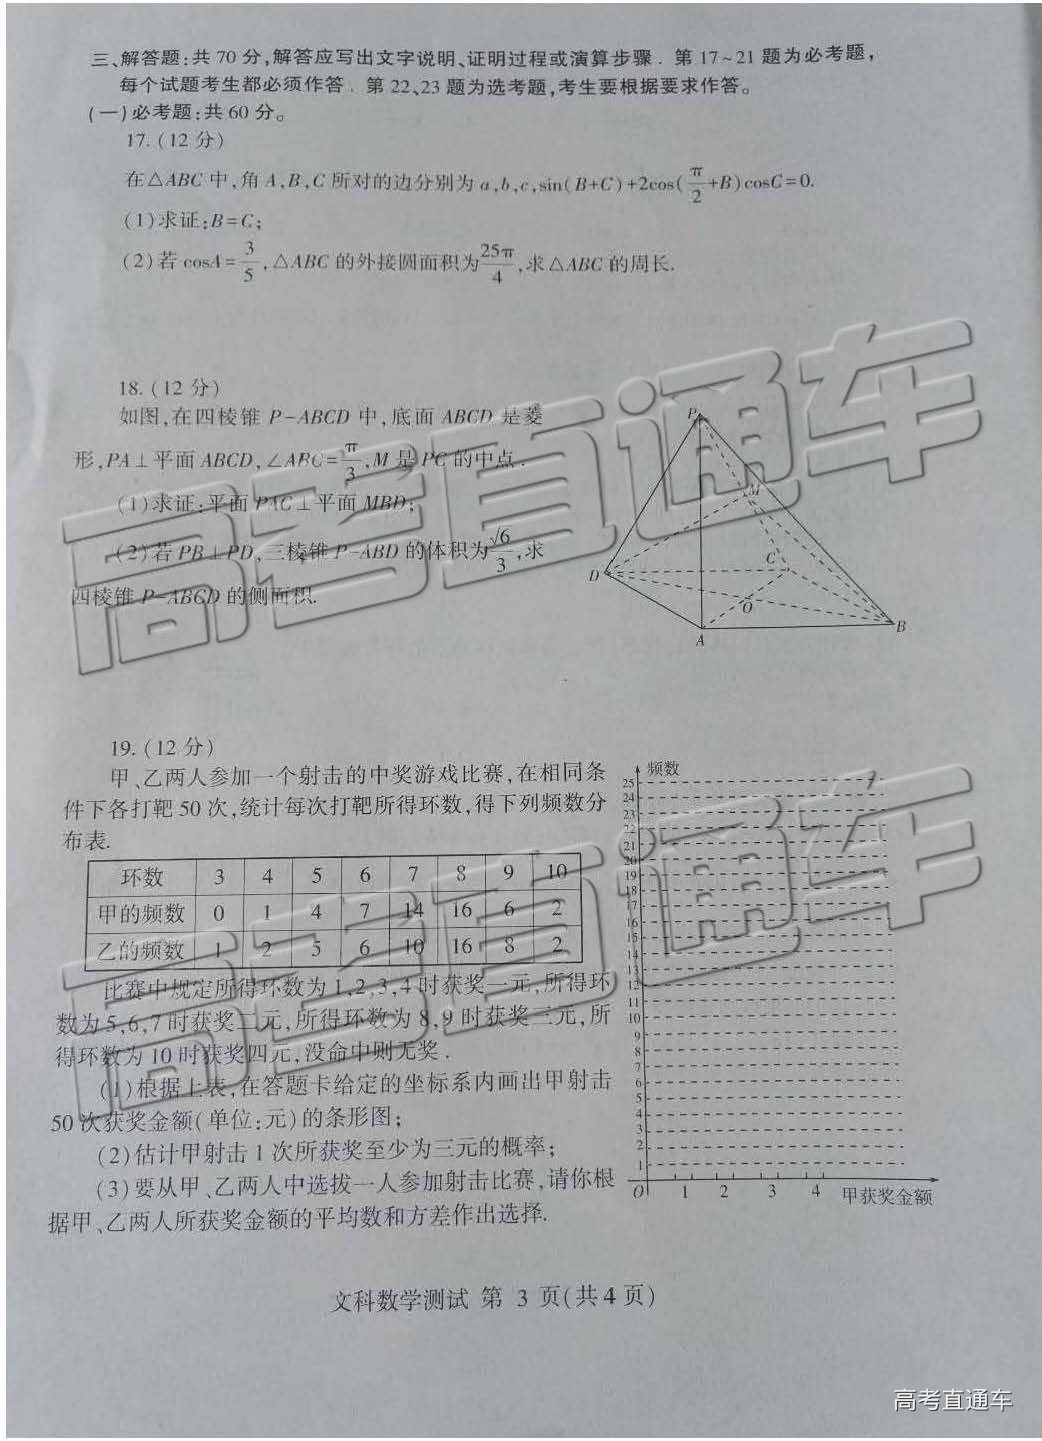 三、解答题:共 70 分,解答应写出文字说明、证明过程或演算步骤. 第 17~21 题为必考题,
每个试题考生都必须作答. 第 22、23 题为选考题,考生要根据要求作答。
(一)必考题:共 60 分。
17. (12 分)
在△ABC 中,角 A,B,C 所对的边分别为 a,b,c,sin(B+C)+2cos(π/2+B)cosC=0.
(1)求证:B=C;
(2)若 cosA=3/5,△ABC 的外接圆面积为25π/4,求△ABC 的周长.
18. (12 分)
如图,在四棱锥 P-ABCD 中,底面 ABCD 是菱
形,PA⊥平面 ABCD,∠ABC=π/3,M 是 PC 的中点.
(1)求证:平面 PAC⊥平面 MBD;
(2)若 PB⊥PD,三棱锥 P-ABD 的体积为√6/3,求
四棱锥 P-ABCD 的侧面积.
P
M
D
C
O
A
B
19. (12 分)
甲、乙两人参加一个射击的中奖游戏比赛,在相同条
件下各打靶 50 次,统计每次打靶所得环数,得下列频数分
布表.
环数 3 4 5 6 7 8 9 10
甲的频数 0 1 4 7 14 16 6 2
乙的频数 1 2 5 6 10 16 8 2
比赛中规定所得环数为 1,2,3,4 时获奖一元,所得环
数为 5,6,7 时获奖二元,所得环数为 8,9 时获奖三元,所
得环数为 10 时获奖四元,没命中则无奖.
(1)根据上表,在答题卡给定的坐标系内画出甲射击
50 次获奖金额(单位:元)的条形图;
(2)估计甲射击 1 次所获奖至少为三元的概率;
(3)要从甲、乙两人中选拔一人参加射击比赛,请你根
据甲、乙两人所获奖金额的平均数和方差作出选择.
频数
25
24
23
22
21
20
19
18
17
16
15
14
13
12
11
10
9
8
7
6
5
4
3
2
1
O 1 2 3 4 甲获奖金额
文科数学测试 第 3 页(共 4 页)
高考直通车
高考直通车
高考直通车